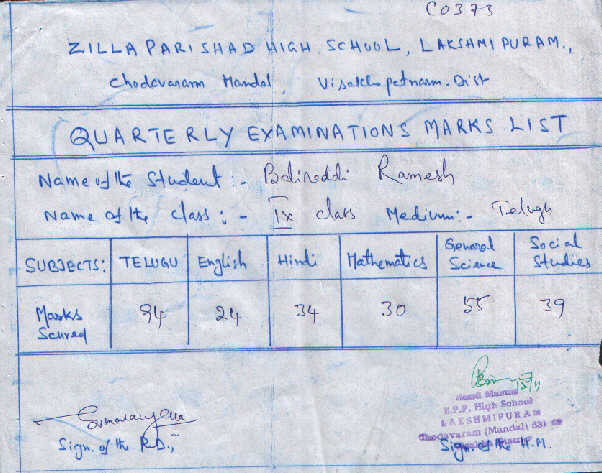 C0373
ZILLA PARISHAD HIGH SCHOOL, LAKSHMIPURAM.,
Chodavaram Mandal, Visakhapatnam. Dist
QUARTERLY EXAMINATIONS MARKS LIST
Name of the Student :- Bodireddi Ramesh
Name of the class :- IX class Medium :- Telugu
SUBJECTS: TELUGU English Hindi Mathematics General Science Social Studies
Marks Scured 94 24 34 30 55 39
Z.P.P. High School
LAKSHMIPURAM
Chodavaram (Mandal) 531
Sign. of the R.D., Sign. of the H.M.